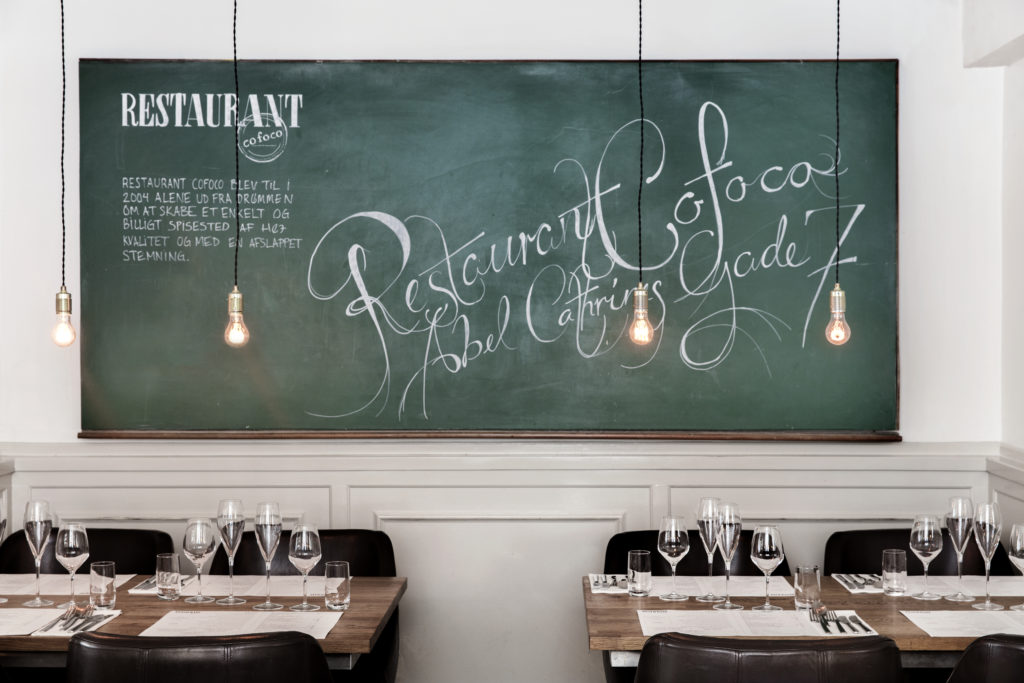 RESTAURANT
cofoco
RESTAURANT COFOCO BLEV TIL I
2004 ALENE UD FRA DRØMMEN
OM AT SKABE ET ENKELT OG
BILLIGT SPISESTED AF HØJ
KVALITET OG MED EN AFSLAPPET
STEMNING.
Restaurant Cofoco
Abel Cathrines Gade 7